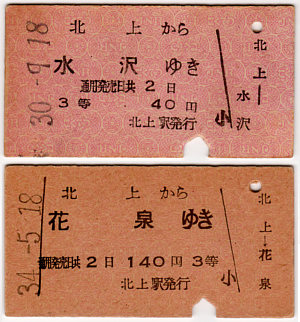 30-9.18
北上から
水沢ゆき
通用発売日共2日
3等 40円
北上駅発行
小
北上―水沢
34-5.18
北上から
花泉ゆき
通用発売日共2日 140円 3等
北上駅発行
小
北上→花泉